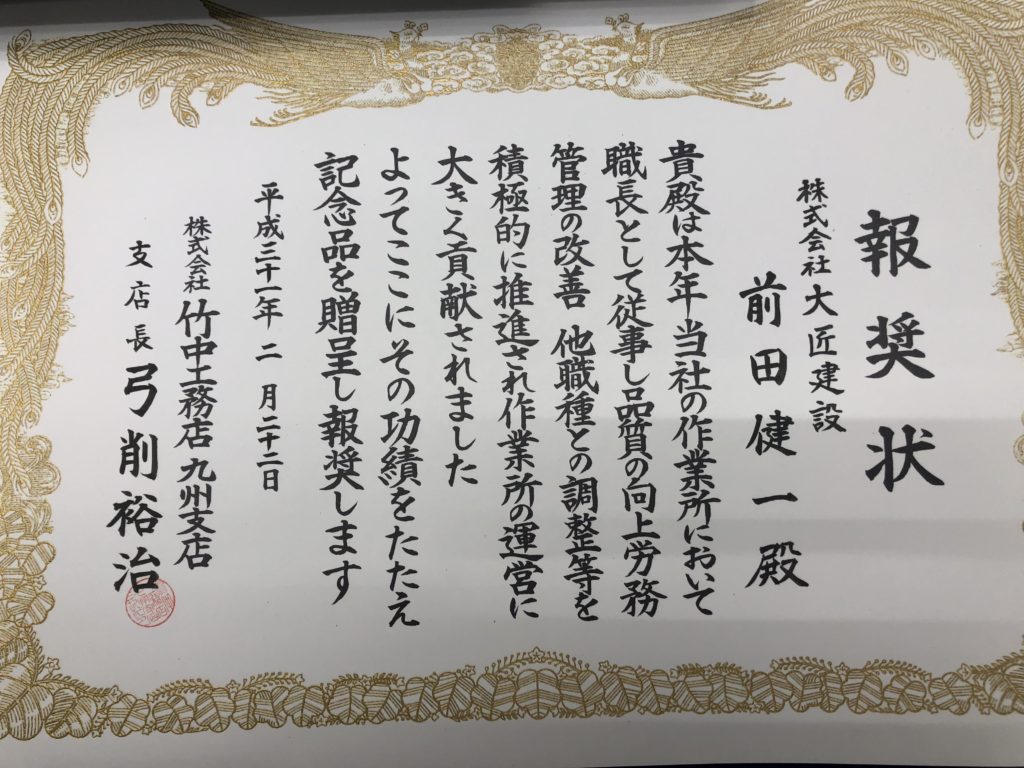 報奨状
株式会社大匠建設
前田健一殿
貴殿は本年当社の作業所において
職長として従事し品質の向上労務
管理の改善 他職種との調整等を
積極的に推進され作業所の運営に
大きく貢献されました
よってここにその功績をたたえ
記念品を贈呈し報奨します
平成三十一年 二 月二十二日
株式会社 竹中工務店 九州支店
支店長 弓削裕治